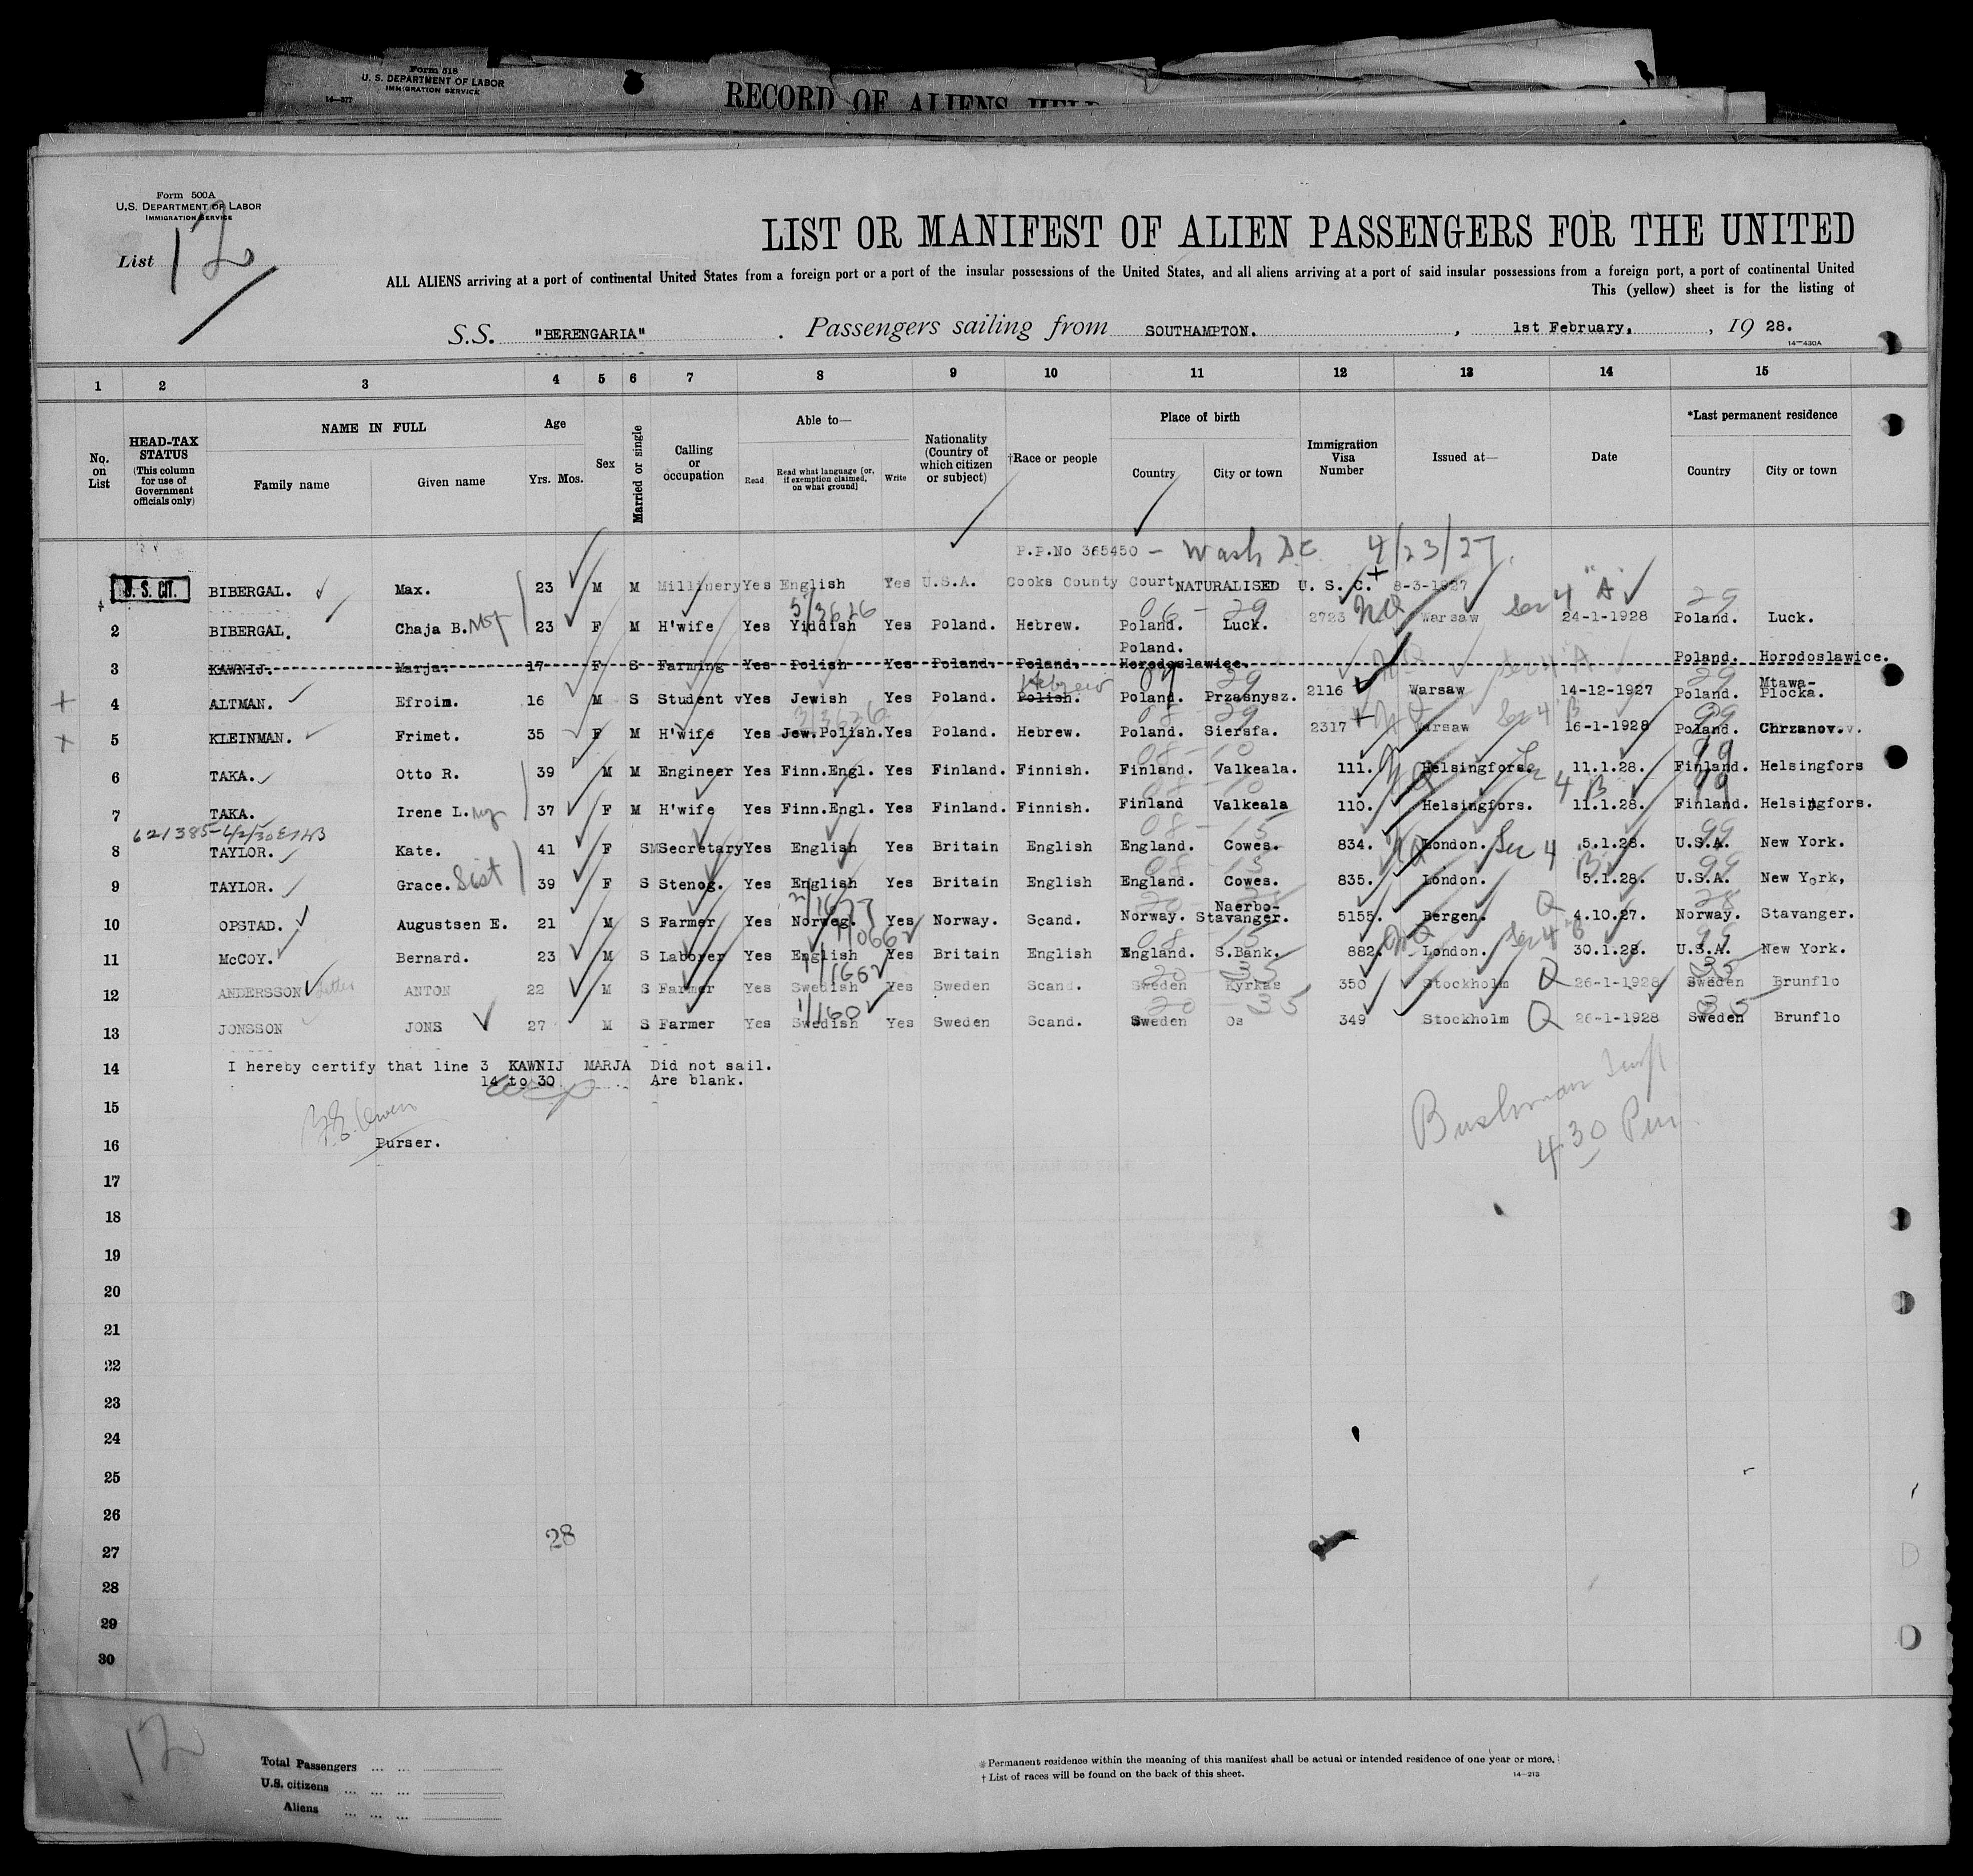 Form 518
U. S. DEPARTMENT OF LABOR
IMMIGRATION SERVICE
14—377
RECORD OF ALIENS HELD
Form 500A
U.S. DEPARTMENT OF LABOR
IMMIGRATION SERVICE
List 12
LIST OR MANIFEST OF ALIEN PASSENGERS FOR THE UNITED
ALL ALIENS arriving at a port of continental United States from a foreign port or a port of the insular possessions of the United States, and all aliens arriving at a port of said insular possessions from a foreign port, a port of continental United
This (yellow) sheet is for the listing of
S.S. "BERENGARIA" . Passengers sailing from SOUTHAMPTON. , 1st February, , 19 28.
14—430A
1 2 3 4 5 6 7 8 9 10 11 12 13 14 15
No. on List
HEAD-TAX STATUS (This column for use of Government officials only)
NAME IN FULL
Family name Given name
Age
Yrs. Mos.
Sex
Married or single
Calling or occupation
Able to—
Read Read what language [or, if exemption claimed, on what ground] Write
Nationality (Country of which citizen or subject)
†Race or people
Place of birth
Country City or town
Immigration Visa Number
Issued at—
Date
*Last permanent residence
Country City or town
P.P.No 365450 — Wash DC 4/23/27.
U. S. CIT. BIBERGAL. Max. 23 M M Millinery Yes English Yes U.S.A. Cooks County Court NATURALISED U. S. C. 8-3-1927
5/3626 06 - 29 NQ Sec 4 "A" 29
2 BIBERGAL. Chaja B. 23 F M H'wife Yes Yiddish Yes Poland. Hebrew. Poland. Luck. 2723 Warsaw 24-1-1928 Poland. Luck.
Poland.
3 KAWNIJ. Marja. 17 F S Farming Yes Polish Yes Poland. Poland. Horodoslawice. Poland. Horodoslawice.
NQ Sec 4 A
Hebrew 29 29 Mtawa-
4 ALTMAN. Efroim. 16 M S Student Yes Jewish Yes Poland. Polish. Poland. Przasnysz. 2116 Warsaw 14-12-1927 Poland. Plocka.
08 - 29 NQ Sec 4 B 99
5 KLEINMAN. Frimet. 35 F M H'wife Yes Jew.Polish. Yes Poland. Hebrew. Poland. Siersfa. 2317 Warsaw 16-1-1928 Poland. Chrzanov.
08 - 10 99
6 TAKA. Otto R. 39 M M Engineer Yes Finn.Engl. Yes Finland. Finnish. Finland. Valkeala. 111. Helsingfors. 11.1.28. Finland. Helsingfors
08 - 10 NQ Sec 4 B 99
7 TAKA. Irene L. 37 F M H'wife Yes Finn.Engl. Yes Finland. Finnish. Finland Valkeala 110. Helsingfors. 11.1.28. Finland. Helsingfors.
621385-4/2/30
08 - 15 99
8 TAYLOR. Kate. 41 F S Secretary Yes English Yes Britain English England. Cowes. 834. NQ London. Sec 4 B 5.1.28. U.S.A. New York.
08 - 15 99
9 TAYLOR. Grace. Sist 39 F S Stenog. Yes English Yes Britain English England. Cowes. 835. London. 5.1.28. U.S.A. New York,
Naerbo- Q 28
10 OPSTAD. Augustsen E. 21 M S Farmer Yes Norweg. Yes Norway. Scand. Norway. Stavanger. 5155. Bergen. 4.10.27. Norway. Stavanger.
08 - 15 NQ Sec 4 B 99
11 McCOY. Bernard. 23 M S Laborer Yes English Yes Britain English England. S.Bank. 882. London. 30.1.28. U.S.A. New York.
20 - 35 35
12 ANDERSSON ANTON 22 M S Farmer Yes Swedish Yes Sweden Scand. Sweden Kyrkas 350 Stockholm Q 26-1-1928 Sweden Brunflo
1/160 20 - 35 35
13 JONSSON JONS 27 M S Farmer Yes Swedish Yes Sweden Scand. Sweden Os 349 Stockholm Q 26-1-1928 Sweden Brunflo
14 I hereby certify that line 3 KAWNIJ MARJA Did not sail.
14 to 30 Are blank.
15
Owen
16 Purser.
Bushman Insp
4 30 Pm.
17
18
19
20
21
22
23
24
25
26
28
27
28
29
30
12
Total Passengers
U.S. citizens
Aliens
*Permanent residence within the meaning of this manifest shall be actual or intended residence of one year or more.
†List of races will be found on the back of this sheet.
14—213